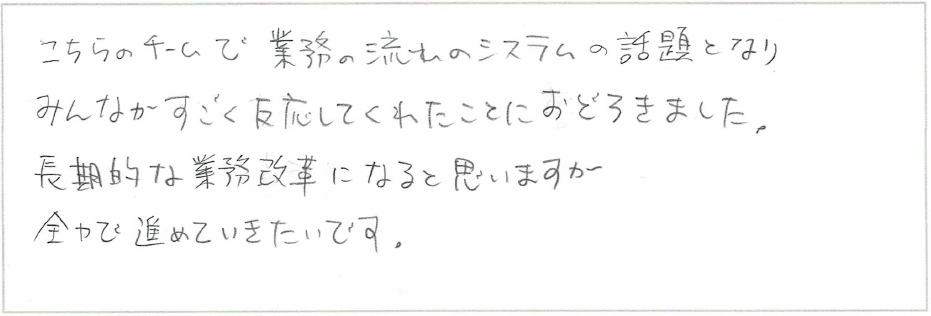 こちらのチームで業務の流れのシステムの話題となり
みんながすごく反応してくれたことにおどろきました。
長期的な業務改革になると思いますが
全力で進めていきたいです。